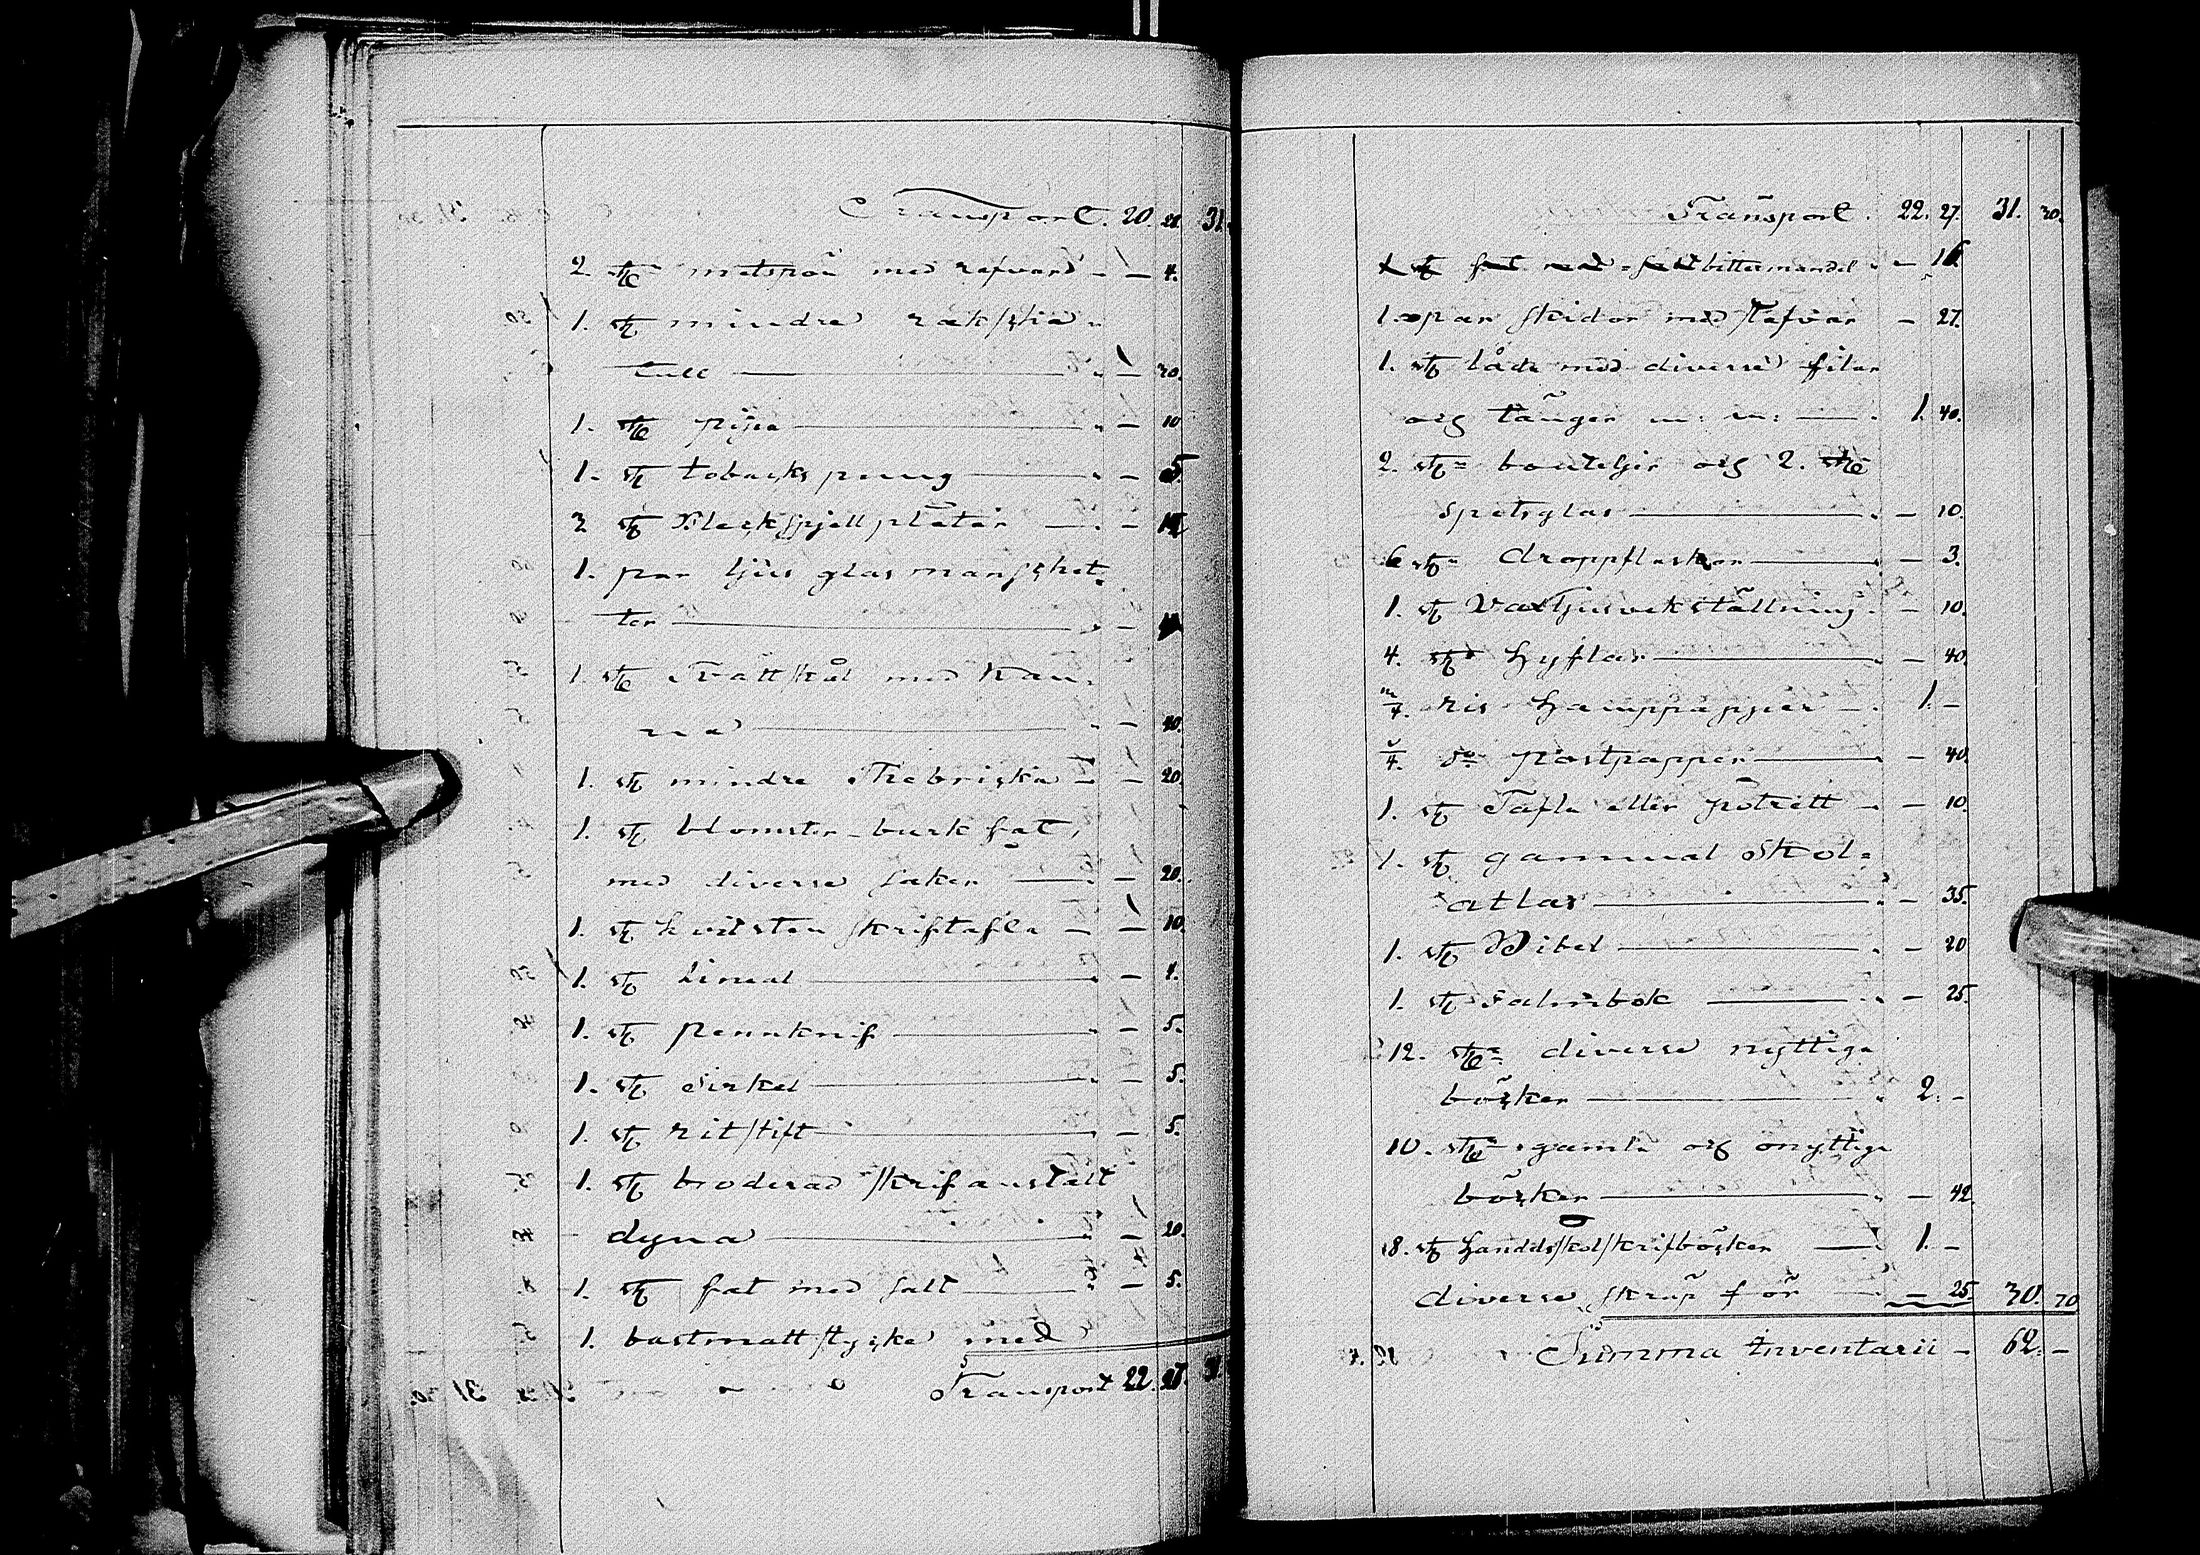 Transport. 20. 28. 31.
2 st: metspön med refvard - — 4.
1. st mindre rakspe
tull — 20.
1. st pipa — 10
1. st tobacks pung — 5.
2 st Bleckspjellplåtar —
1. par ljus glas manschet-
ter —
1 st Tvättskål med Kan-
na — 40.
1. st mindre Thebricka — 20.
1. st blomster-burk fat,
med diverse saker — 20.
1. st hvitsten skriftafla — 10.
1. st Lineal — 4.
1. st pennknif — 5.
1. st Sirkel — 5.
1. st ritstift — 5.
1. st broderad skrifanstalt
dyna — 20.
1. st fat med salt — 5.
1. bastmattstycke med
Transport 22. 27. 31.
Transport. 22. 27. 31. 30.
bittermandel — 16
1. par skidor med stafvar — 27.
1. st låda med diverse filar
och tänger m: m: — 1. 40.
2. st: bouteljer och 2. st:
spetsglas — 10.
6 st: droppflaskor — 3.
1. st Vaxljusvekställning — 10.
4. st: Hyflar — 40.
ris Hampapper — 1. —
4. do postpapper — 40.
1. st Tafla eller potrett — 10.
1. st gammal Skol-
atlas — 35.
1. st Bibel — 20
1. st Salmbok — 25.
12. st: diverse nyttiga
böcker — 2. —
10. st: gamla och onyttiga
böcker — 42
18. st Handdsskolskrifböcker — 1. —
diverse skrap för — 25. 30. 70
Summa Inventarii — 62. —